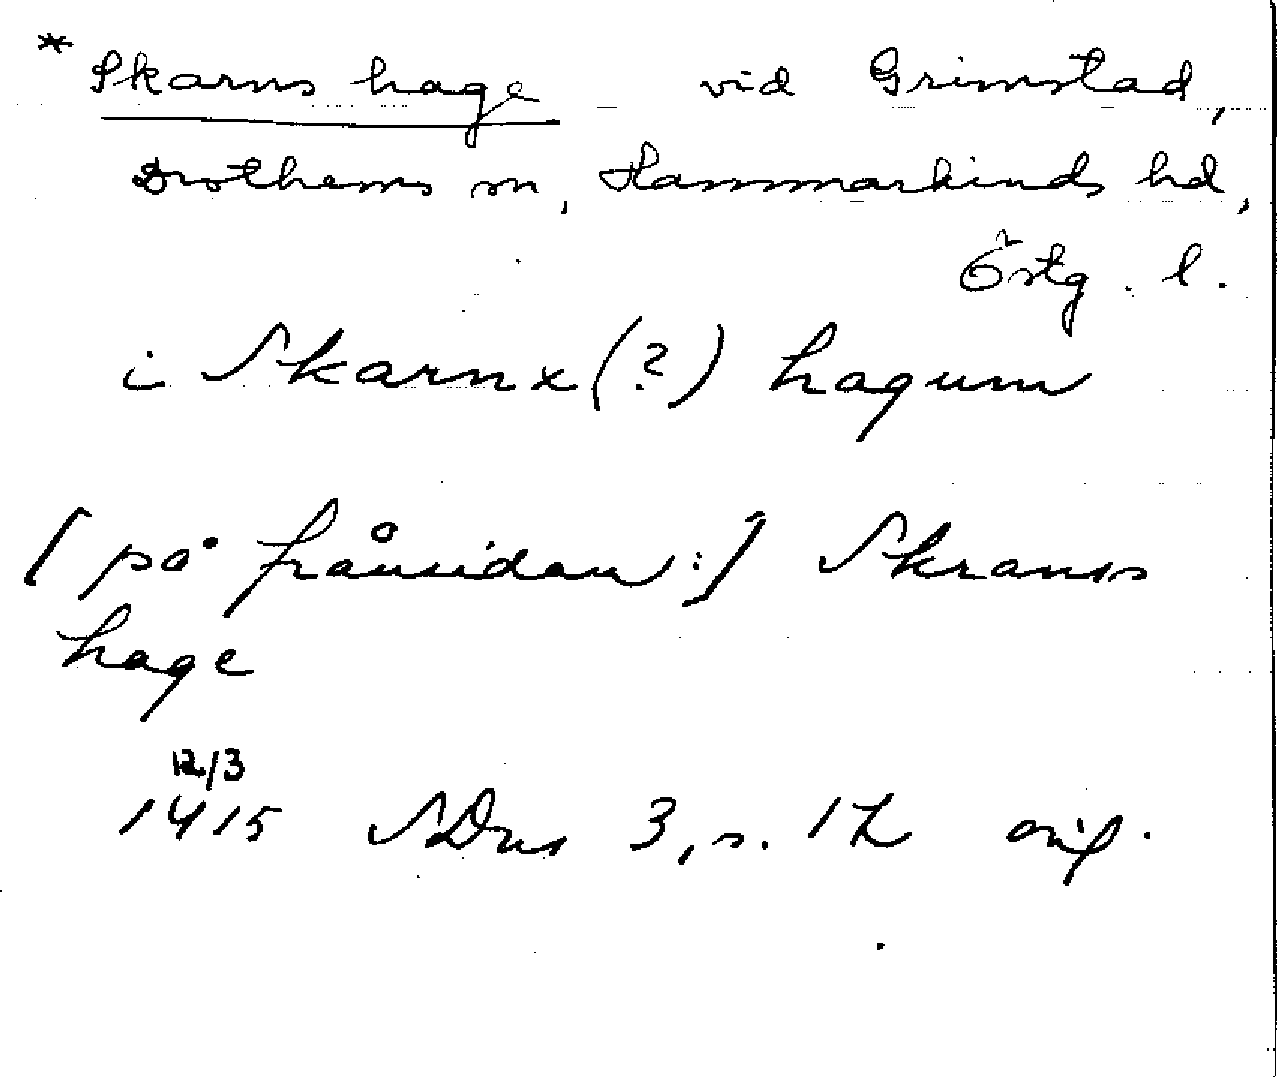 * Skarns hage vid Grimstad,
Drothems sn, Hammarkinds hd,
Östg. l.
i Skarnx (?) hagum
[på frånsidan:] Skrans
hage
12/3
1415 SDns 3, s. 12 orig.